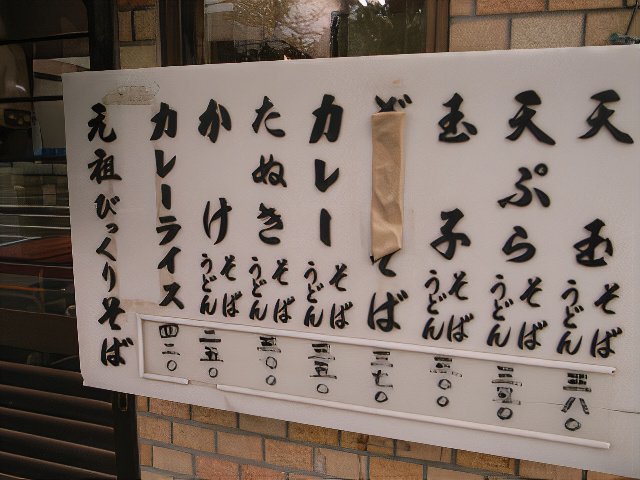 天玉そばうどん三八〇
天ぷらそばうどん三五〇
玉子そばうどん三〇〇
そば三七〇
カレーそばうどん三五〇
たぬきそばうどん三〇〇
かけそばうどん二五〇
カレーライス四二〇
元祖びっくりそば